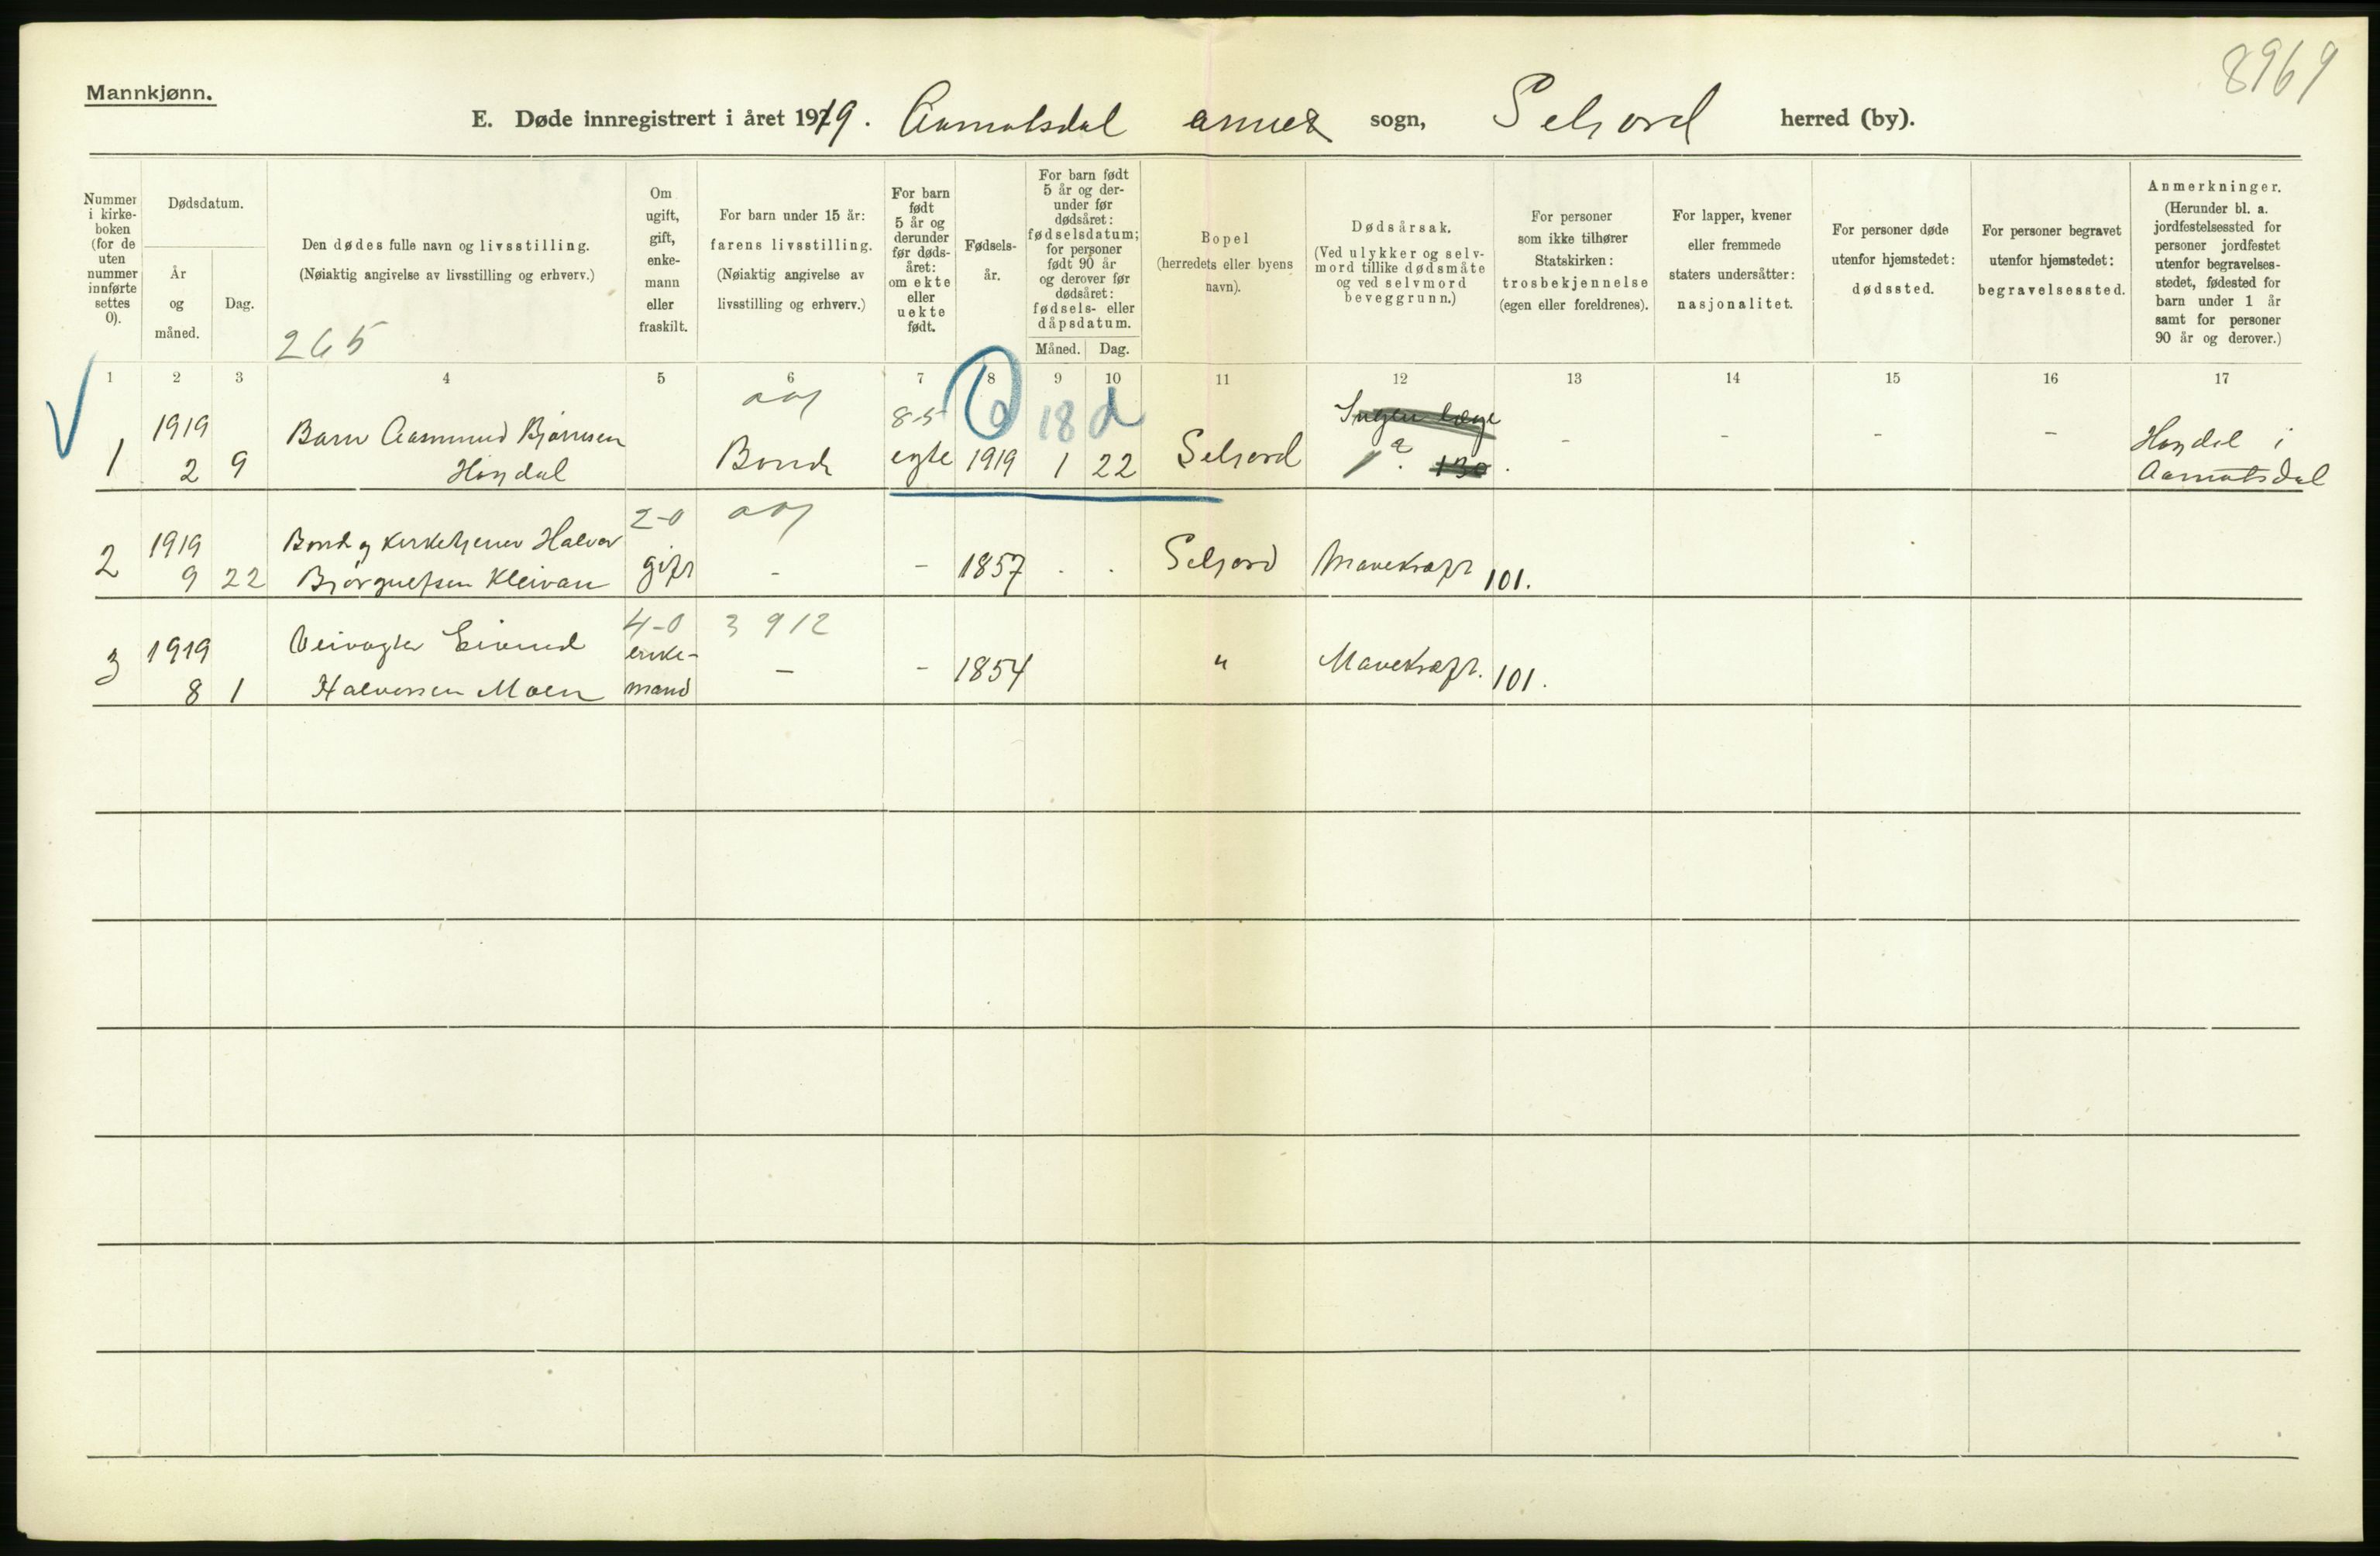 8969
Mannkjønn.
E. Døde innregistrert i året 1919. Aamotsdal annex sogn, Seljord herred (by).
Nummer i kirke-boken (for de uten nummer innførte settes 0).
Dødsdatum.
År og måned.
Dag.
Den dødes fulle navn og livsstilling.
(Nøiaktig angivelse av livsstilling og erhverv.)
265
Om ugift, gift, enke-mann eller fraskilt.
For barn under 15 år: farens livsstilling.
(Nøiaktig angivelse av livsstilling og erhverv.)
For barn født 5 år og derunder før døds-året: om ekte eller uekte født.
Fødsels-år.
For barn født 5 år og der-under før dødsåret: fødselsdatum; for personer født 90 år og derover før dødsåret: fødsels- eller dåpsdatum.
Måned. Dag.
Bopel (herredets eller byens navn).
Dødsårsak.
(Ved ulykker og selv-mord tillike dødsmåte og ved selvmord beveggrunn.)
For personer som ikke tilhører Statskirken: trosbekjennelse (egen eller foreldrenes).
For lapper, kvener eller fremmede staters undersåtter: nasjonalitet.
For personer døde utenfor hjemstedet: dødssted.
For personer begravet utenfor hjemstedet: begravelsessted.
Anmerkninger.
(Herunder bl. a. jordfestelsessted for personer jordfestet utenfor begravelses-stedet, fødested for barn under 1 år samt for personer 90 år og derover.)
1 2 3 4 5 6 7 8 9 10 11 12 13 14 15 16 17
8-5 18 d
1919 Barn Aasmund Bjørnsen Ingen læge - - - - Høydal i
1 2 9 Høydal Bonde egte 1919 1 22 Seljord ? 130 Aamotsdal
2-0
1919 Bonde og Kirketjener Halvor
2 9 22 Bjørgulfsen Kleivan gift - - 1857 . . Seljord Mavekræft 101.
4-0 3 912
1919 Veivogter Eivind enke-
3 8 1 Halvorsen Moen mand - - 1854 " Mavekræft. 101.